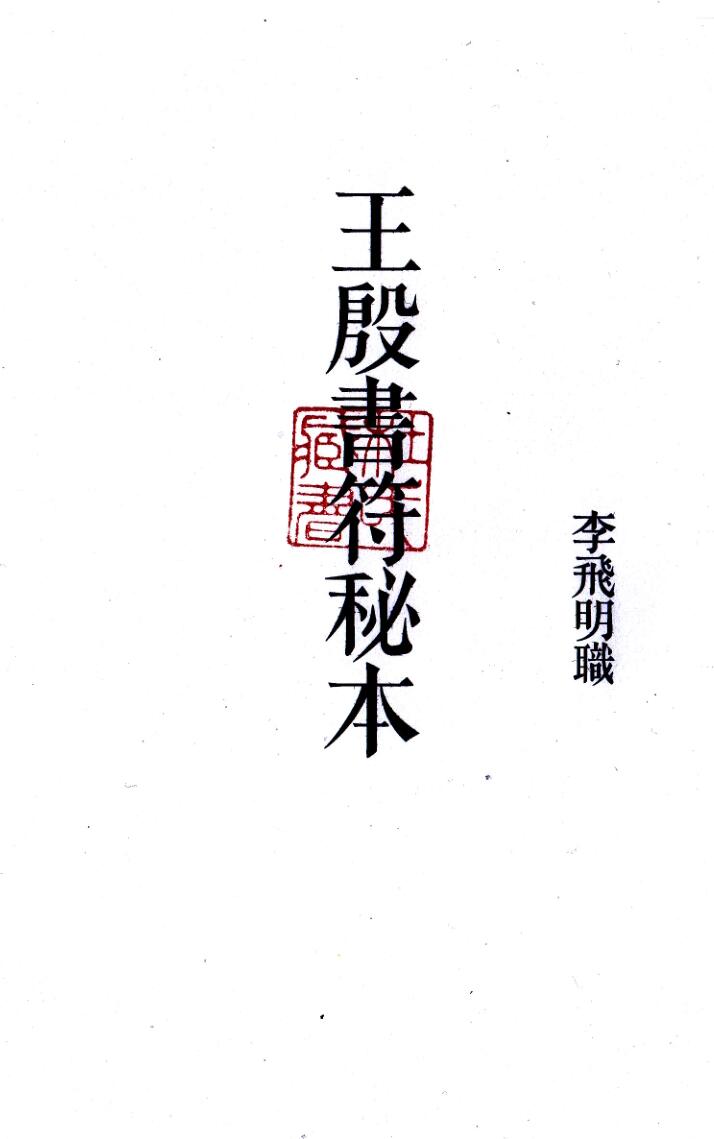 李飛明職
王殷書符秘本